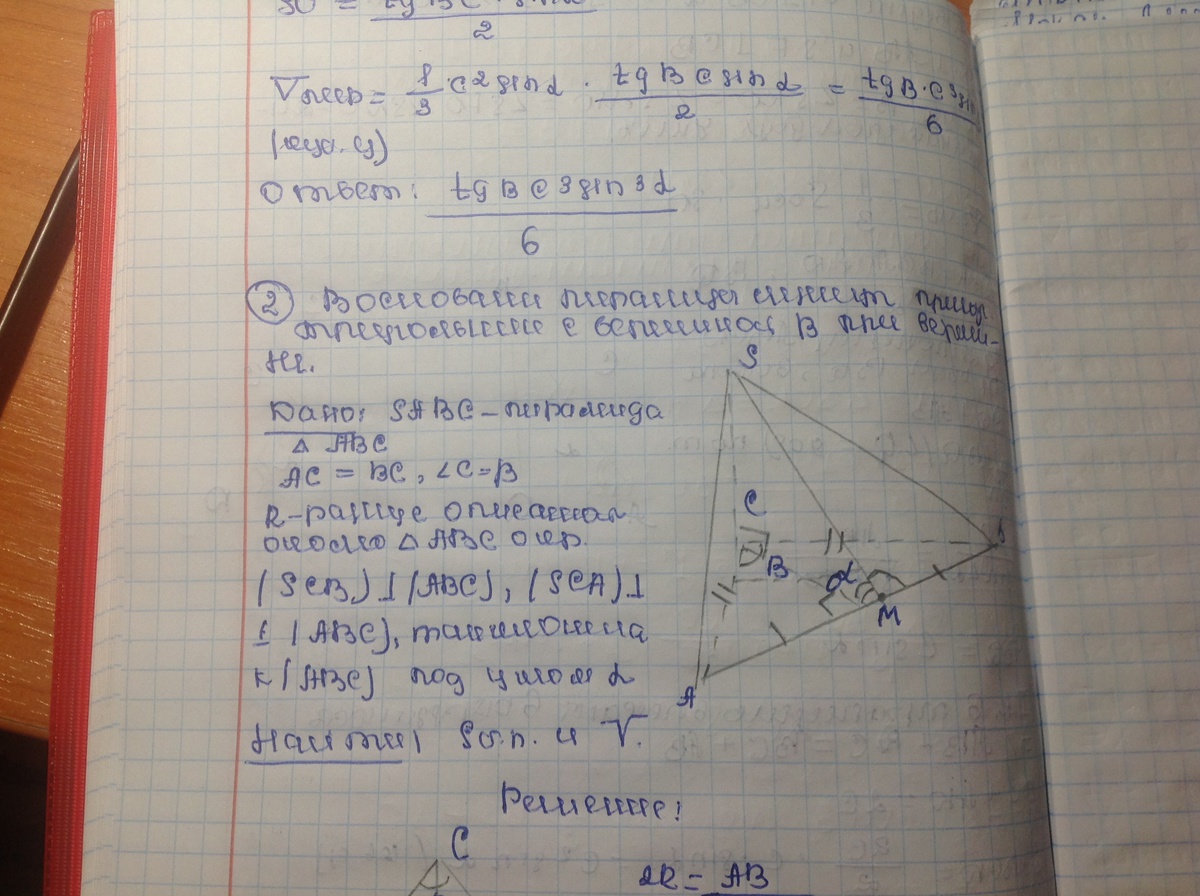 SO = tg B C sin α
2
Vпир = 1/3 · c2 sin α · tg B C sin α / 2 = tg B · C 3 sin / 6
(куб. ед)
Ответ: tg B C 3 sin 3 α
6
2 В основании пирамиды лежит
треугольник с вершиной B при верши-
не.
Дано: SABC – пирамида
△ ABC
AC = BC, ∠C = B
R – радиус описанной
около △ ABC окр.
(SCB) ⊥ (ABC), (SCA) ⊥
⊥ (ABC), наклонена
к (ABC) под углом α
Найти: Sб.п. и V.
S
C
B
α
M
A
Решение:
C
2R = AB